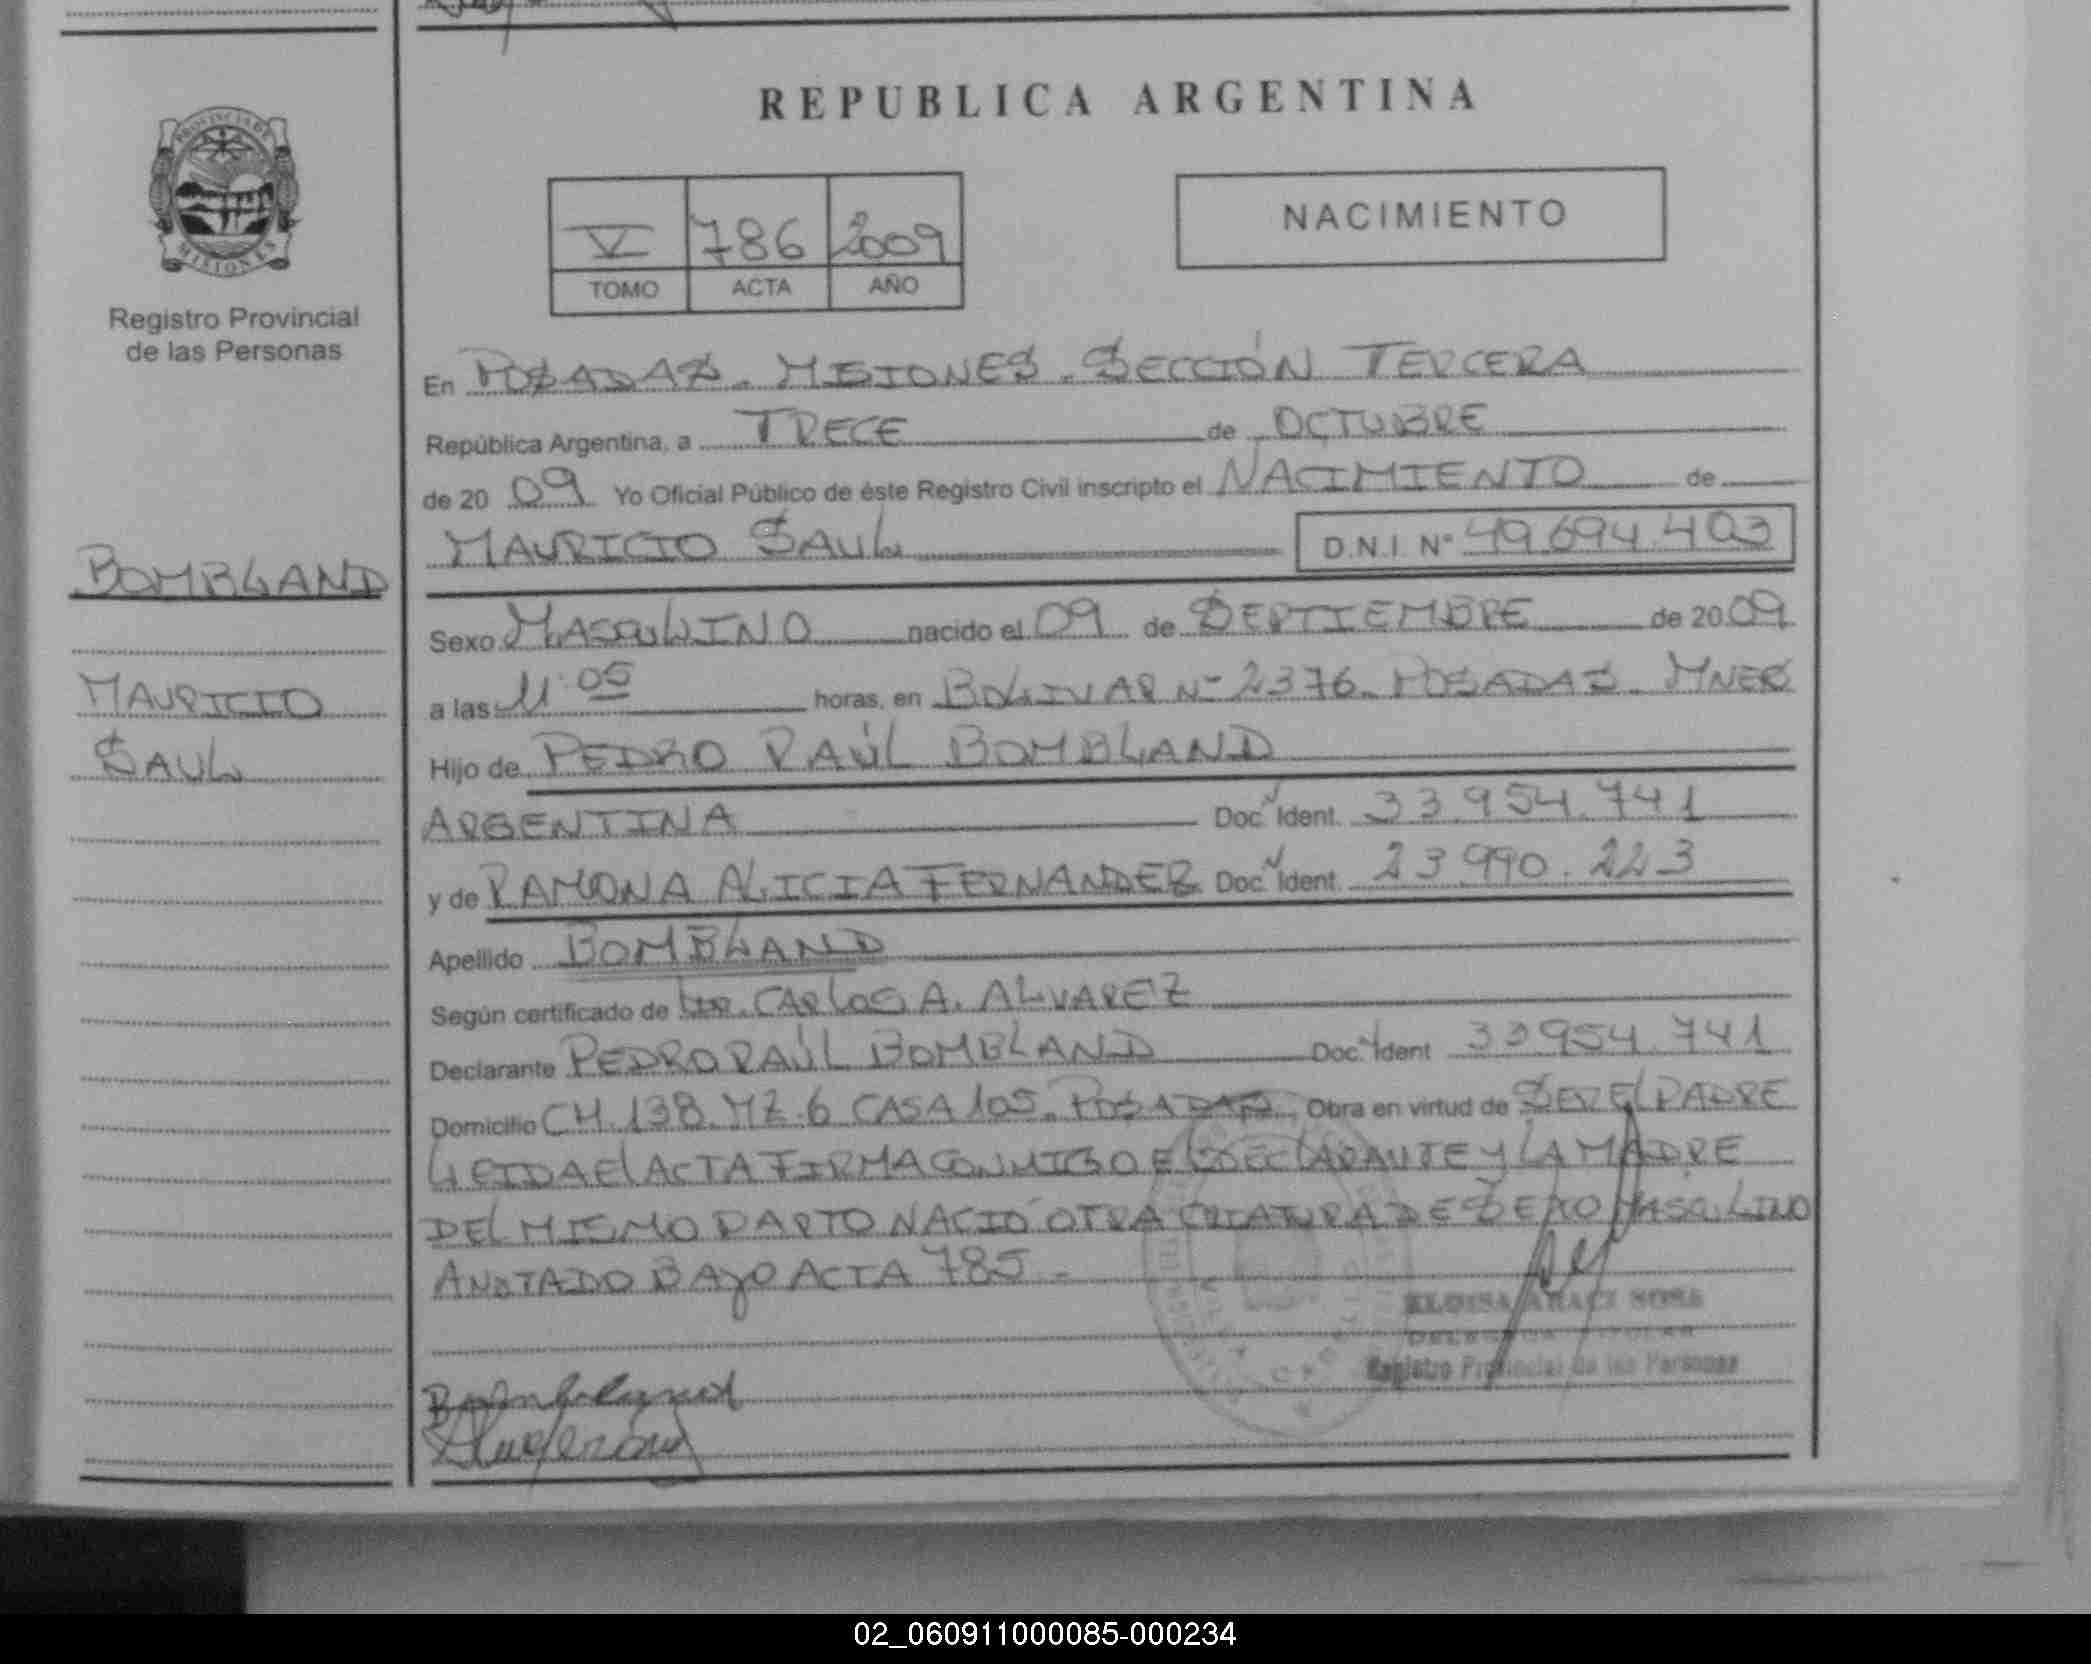 REPUBLICA ARGENTINA
PROVINCIA DE
MISIONES
Registro Provincial
de las Personas
V 786 2009
TOMO ACTA AÑO
NACIMIENTO
En POSADAS. MISIONES. SECCIÓN TERCERA
República Argentina, a TRECE de OCTUBRE
de 2009 Yo Oficial Público de éste Registro Civil inscripto el NACIMIENTO de
MAURICIO SAUL D.N.I. Nº 49.694.403
BOMBLAND
MAURICIO
SAUL
Sexo MASCULINO nacido el 09 de SEPTIEMBRE de 2009
a las 11:05 horas, en BOLIVAR Nº 2376. POSADAS. MNES
Hijo de PEDRO RAÚL BOMBLAND
ARGENTINA Doc. Ident. 33.954.741
y de RAMONA ALICIA FERNANDEZ Doc. Ident. 23.990.223
Apellido BOMBLAND
Según certificado de CARLOS A. ALVAREZ
Declarante PEDRO RAÚL BOMBLAND Doc. Ident 33954.741
Domicilio CH. 138. MZ. 6 CASA 105. POSADAS. Obra en virtud de SER EL PADRE
LEIDA EL ACTA FIRMA CONMIGO EL DECLARANTE Y LA MADRE
DEL MISMO PARTO NACIÓ OTRA CRIATURA DE SEXO MASCULINO
ANOTADO BAJO ACTA 785.-
ELOISA ARACI SOSA
DELEGADA TITULAR
Registro Provincial de las Personas
Bombland
02_060911000085-000234